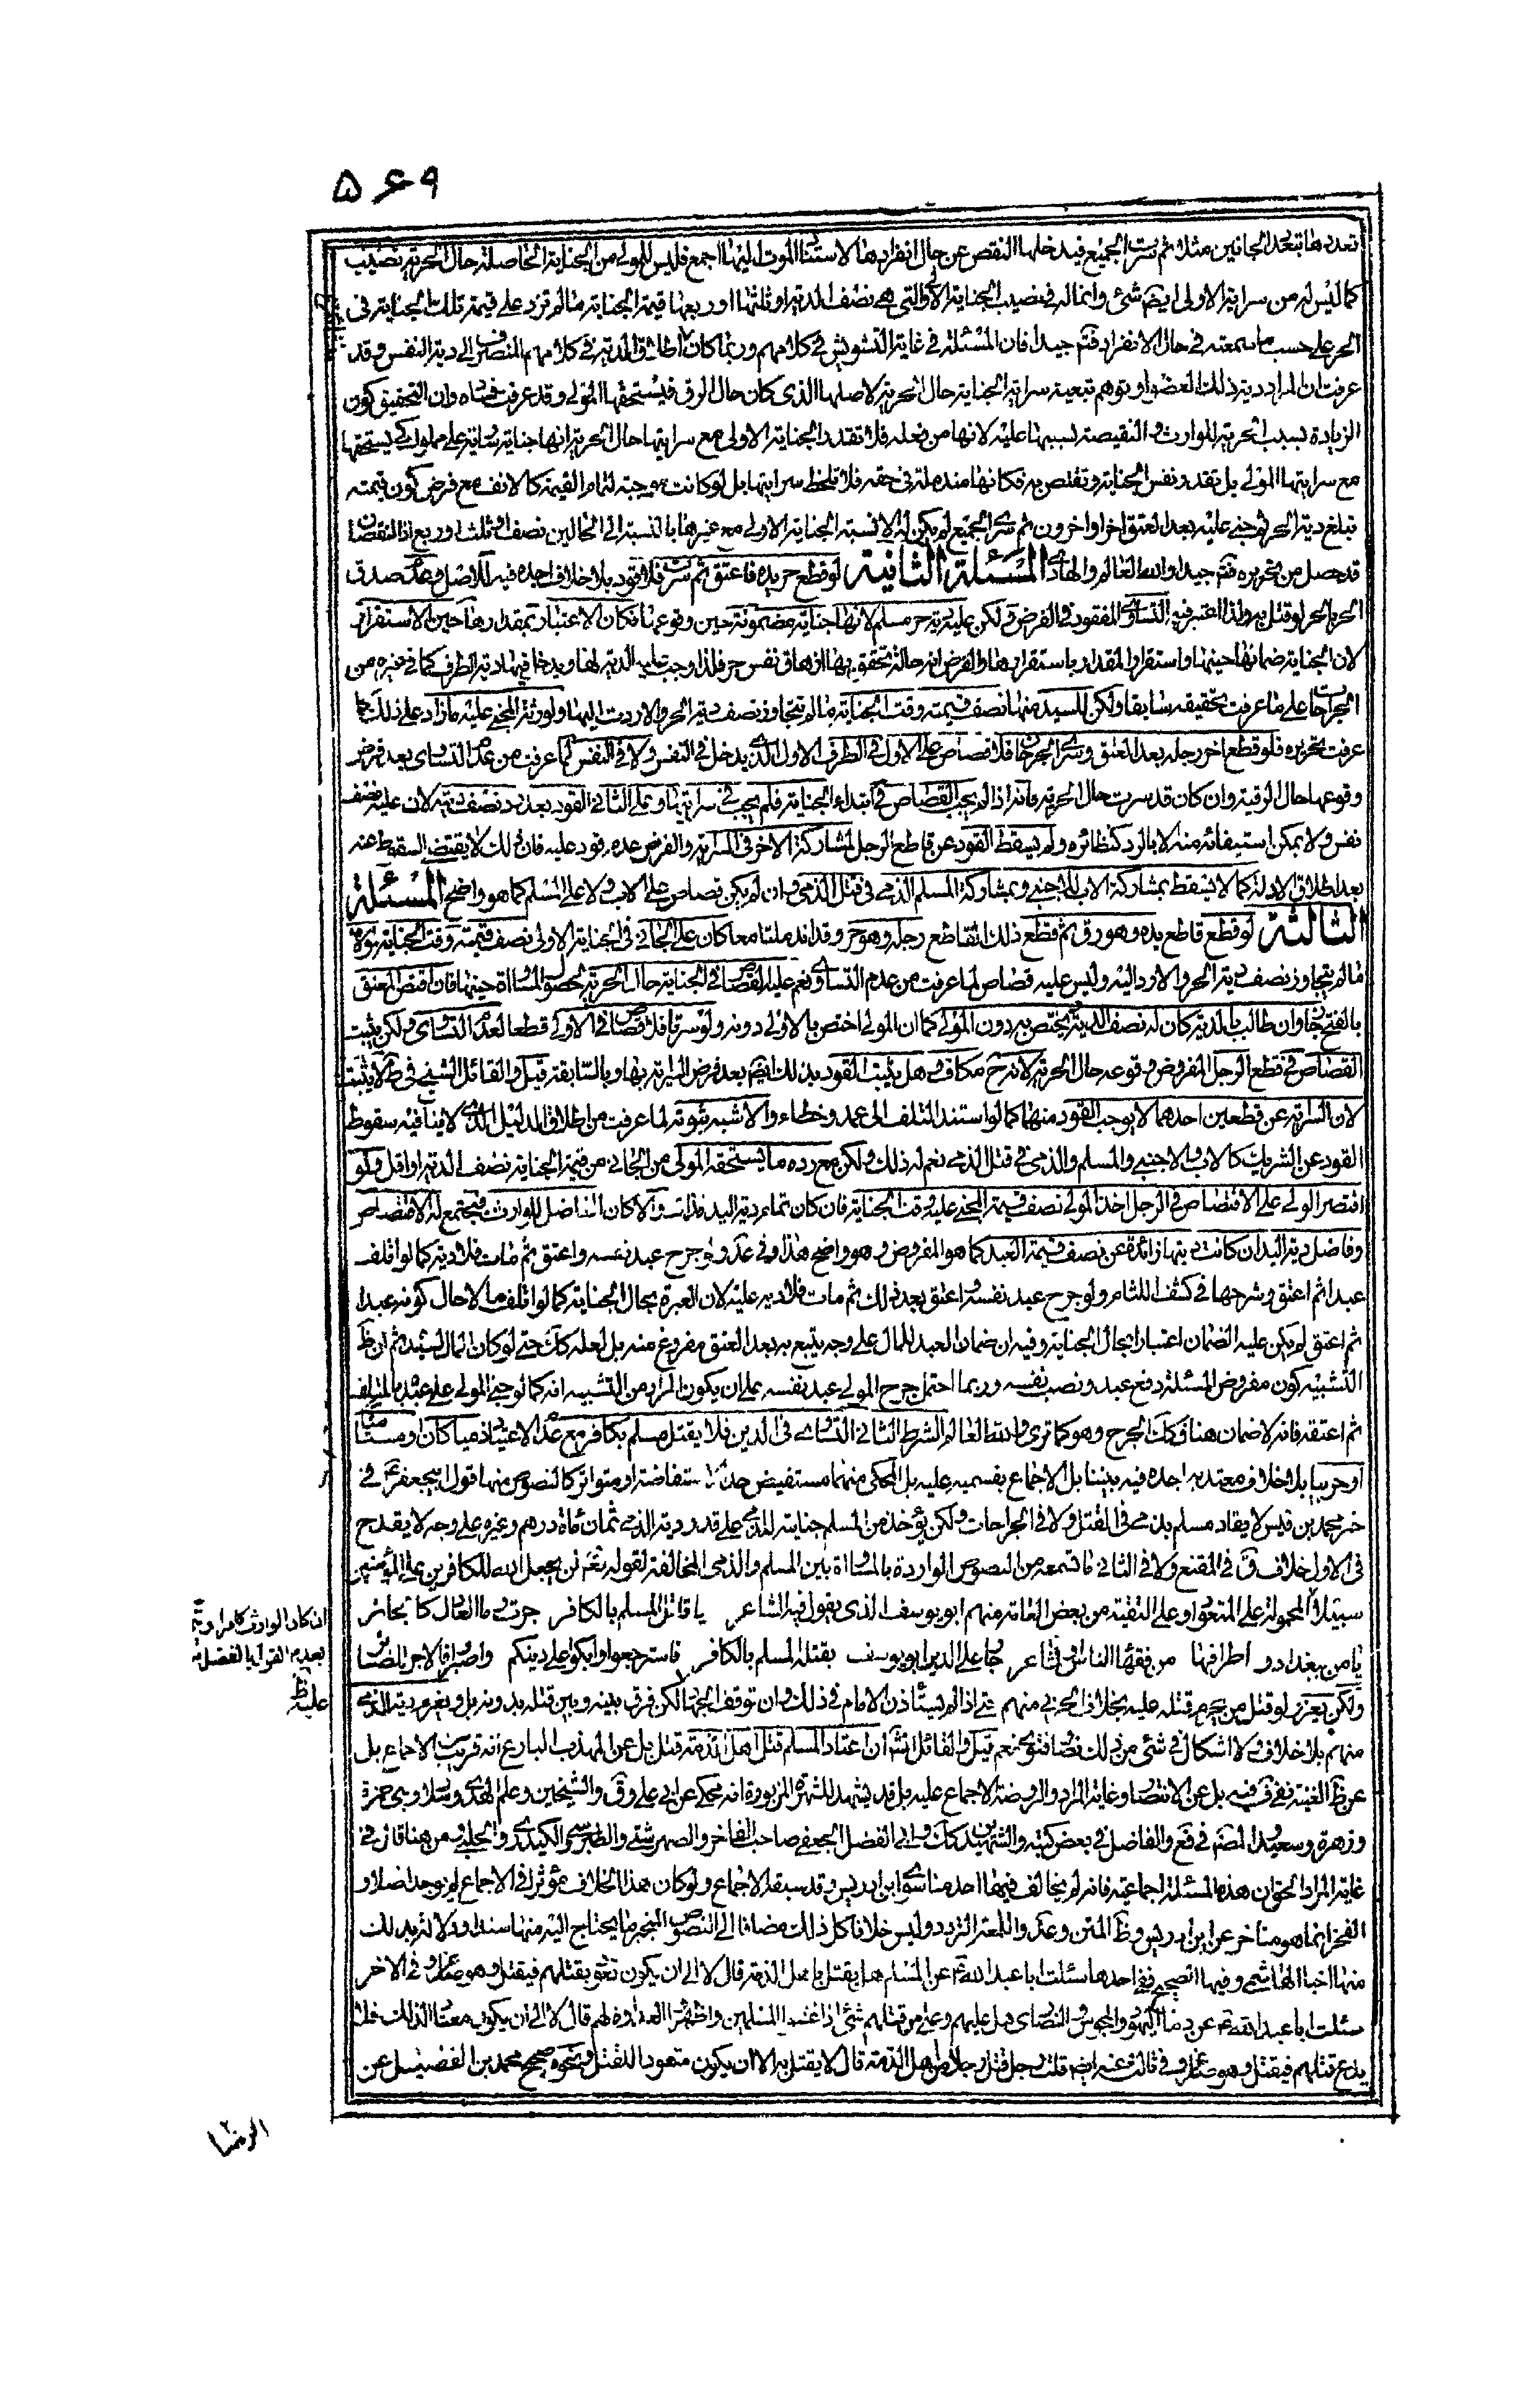 ۵۶۹
تعددها بتعدد الجانين مثلا ثم سرت الجميع فيدخلها النقص عن حال انفرادها لاستناد الموت اليها اجمع فليس للمولى من الجناية الحاصلة حال الحرية نصيب
كما ليس له من سراية الاولى ايضا شئ وانما له في نصيب الجناية الاولى والتى هي نصف الدية او ثلثها او ربعها قيمة الجناية ما لم تزد على قيمة تلك الجناية في
الحر على حسب ما سمعته في حال الانفراد فتم جيدا فان المسئلة في غاية التشويش في كلامهم وربما كان لاطلاق الدية في كلامهم المنصرف الى دية النفس وقد
عرفت ان المراد دية ذلك العضو او توهم تبعية سراية الجناية حال الحرية لاصلها الذى كان حال الرق فيستحقها المولى وقد عرفت فساده وان التحقيق كون
الزيادة بسبب الحرية للوارث والنقيصة بسببها عليه لانها من فعله فلا تقدر الجناية الاولى مع سرايتها حال الحرية انها جناية سارية على مملوك كي يستحقها
مع سرايتها المولى بل يقدر نفس الجناية وتقتص به فكانها مندملة في حقه فلا تلحظ سرايتها بل لو كانت موجبة لتمام القيمة كالانف مع فرض كون قيمته
تبلغ دية الحر ثم جنى عليه بعد العتق اخر او اخرون ثم سرى الجميع لم يكن له الا نسبة الجناية الاولى مع غيرها بالنسبة الى الحالين نصف او ثلث او ربع اذ النقصان
قد حصل من تحريره فتم جيدا والله العالم والهادى المسئلة الثانية لو قطع حر يده فاعتق ثم سرت فلا قود بلا خلاف اجده فيه للاصل وعدم صدق
الحر بالحر لو قتل به ولذا اعتبر فيه التساوى المفقود في الفرض ولكن عليه دية حر مسلم لانها جناية مضمونة حين وقوعها فكان الاعتبار بمقدارها حين الاستقرار
لان الجناية ضمانها حينها واستقرار المقدار باستقرارها والفرض انه حالة تحقق بها ازهاق نفس حر فلذا وجبت عليه الدية لها ويدخل فيها دية الطرف كما في غيره من
الجراحات على ما عرفت تحقيقه سابقا ولكن للسيد منها نصف قيمته وقت الجناية ما لم تتجاوز نصف دية الحر والا ردت اليها ولورثة المجنى عليه ما زاد على ذلك كما
عرفت تحريره فلو قطع اخر رجله بعد العتق وسرى الجرحان فلا قصاص على الاول في الطرف الاول الذى يدخل في النفس ولا في النفس لما عرفت من عدم التساوى بعد فرض
وقوعها حال الرقية وان كان قد سرت حال الحرية فانه اذا لم يجب القصاص في ابتداء الجناية فلم يجب في سرايتها وعلى الثاني القود بعد رد نصف ديته لان عليه نصف
نفس ولا يمكن استيفائه منه الا بالرد كنظائره ولم يسقط القود عن قاطع الرجل لمشاركة الاخر في السراية والفرض عدم قود عليه فان ذلك لا يقتضى السقوط عنه
بعد اطلاق الادلة كما لا يسقط بمشاركة الاب للاجنبي وبمشاركة المسلم الذمى في قتل الذمى وان لم يكن قصاص على الاب ولا على المسلم كما هو واضح المسئلة
الثالثة لو قطع قاطع يده وهو رق ثم قطع ذلك القاطع رجله وهو حر وقد اندملتا معا كان على الجاني في الجناية الاولى نصف قيمته وقت الجناية لمولاه
ما لم يتجاوز نصف دية الحر والا رد اليه وليس عليه قصاص لما عرفت من عدم التساوى نعم عليه القصاص في الجناية حال الحرية لحصول المساواة حينها فان اقتص المعتق
بالفتح جاز وان طالب بالدية كان له نصف الدية يختص به دون المولى كما ان المولى اختص بالاولى دونه ولو سرتا فلا قصاص في الاولى قطعا لعدم التساوى ولكن يثبت
القصاص في قطع الرجل المفروض وقوعه حال الحرية لانه ح مكاف وهل يثبت القود بذلك ايضا بعد فرض السراية بها وبالسابقة قيل والقائل الشيخ في ط لا يثبت
لان السراية عن قطعين احدهما لا يوجب القود منهما كما لو استند التلف الى عمد وخطاء والاشبه ثبوته لما عرفت من اطلاق الدليل الذى لا ينافيه سقوط
القود عن الشريك كالاب والاجنبي والمسلم والذمى في قتل الذمى نعم له ذلك ولكن مع رده ما يستحقه المولى من الجاني من قيمة الجناية نصف الدية او اقل ولو
اقتصر الولى على الاقتصاص في الرجل اخذ المولى نصف قيمة المجنى عليه وقت الجناية فان كان تمام دية اليد فذاك والا كان الفاضل للوارث فيجتمع له الاقتصاص
وفاضل دية اليد ان كانت ديتها زائدة عن نصف قيمة العبد كما هو المفروض وهو واضح هذا وفي عد ولو جرح عبد نفسه واعتق ثم مات فلا دية كما لو اتلف
عبدا ثم اعتق وشرحها في كشف اللثام ولو جرح عبد نفسه واعتق بعد ذلك ثم مات فلا دية عليه لان العبرة بحال الجناية كما لو اتلف مالا حال كونه عبدا
ثم اعتق لم يكن عليه الضمان اعتبارا بحال الجناية وفيه ان ضمان العبد للمال على وجه يتبع به بعد العتق مفروغ منه بل لعله كك حتى لو كان المال لسيده ثم ان ظ
التشبيه كون مفروض المسئلة رفع عبد ونصب نفسه وربما احتمل جرح المولى عبد نفسه على ان يكون المراد من التشبيه انه كما لو جنى المولى على عبده بالمتلف
ثم اعتقه فانه لا ضمان هنا فكك الجرح وهو كما ترى والله العالم الشرط الثانى التساوى في الدين فلا يقتل مسلم بكافر مع عدم الاعتياد ذميا كان او مستأمنا
او حربيا بلا خلاف معتد به اجده فيه بيننا بل الاجماع بقسميه عليه بل المحكى منهما مستفيض جدا كالنصوص منها قول ابيجعفر ع في
خبر محمد بن قيس لا يقاد مسلم بذمى في القتل ولا في الجراحات ولكن يؤخذ من المسلم جنايته للذمى على قدر دية الذمى ثمان مأة درهم وغيره على وجه لا يقدح
في الاول خلاف ق في المقنع ولا في الثاني ما تسمعه من النصوص الواردة بالمساواة بين المسلم والذمى المخالفة لقوله تعم لن يجعل الله للكافرين على المؤمنين
سبيلا المحمولة على المتعود او على التقية من بعض العامة منهم ابو يوسف الذى يقول فيه الشاعر يا قاتل المسلم بالكافر جرت وما العادل كالجائر
يا من ببغداد واطرافها من فقهاء الناس او شاعر جار على الدين ابو يوسف بقتله المسلم بالكافر فاسترجعوا وابكوا على دينكم واصبروا فالاجر للصابر
ولكن يعزر لو قتل من يحرم قتله عليه بخلاف الحربى منهم حتى اذا لم يستأذن الامام في ذلك وان توقف الجهاد لكن فرق بينه وبين قتله بدونه بل ويغرم دية الذمى
منهم بلا خلاف ولا اشكال في شئ من ذلك نصا وفتوى نعم قيل والقائل انه ان اعتاد المسلم قتل اهل الذمة قتل بل عن المهذب البارع انه قريب من الاجماع بل
عن ظ الغنية نفى الخلاف فيه بل عن الانتصار وغاية المراد والروضة الاجماع عليه بل قد يشهد للشهرة المزبورة انه محكى عن ابى على وق والشيخين وعلم الهدى وسلار وبنى حمزة
وزهرة وسعيد والمصنف في فع والفاضل في بعض كتبه والشهيدين كك وابى الفضل الجعفى صاحب الفاخر والصهرشتى والطبرسى والكيدرى والحلبى ومن هنا قال في
غاية المراد الحق ان هذه المسئلة اجماعية فانه لم يخالف فيها احد منا سوى ابن ادريس وقد سبقه الاجماع ولو كان هذا الخلاف مؤثرا في الاجماع لم يوجد اجماع اصلا و
الفخر انما هو متاخر عن ابن ادريس وظ المتن وعد واللمعة التردد وليس خلافا كل ذلك مضافا الى النصوص المنجبر ما يحتاج اليه منها سندا ودلالة بذلك
منها اخبار الهاشمى وفيها الصحيح ففى احدها سئلت ابا عبد الله ع عن المسلم هل يقتل باهل الذمة قال لا الا ان يكون تعود بقتلهم فيقتل وهو صاغر وفي الاخر
سئلت ابا عبد الله ع عن دماء اليهود والمجوس والنصارى هل عليهم وعلى من قتلهم شئ اذا غشوا المسلمين واظهروا العداوة لهم قال لا الا ان يكون معتادا لذلك
يدع قتلهم فيقتل وهو صاغر وفي ثالث عنه ايضا قلت رجل قتل رجلا من اهل الذمة قال لا يقتل به الا ان يكون متعودا للقتل ونحوه صحيح محمد بن الفضيل عن
ان كان الوارث كافرا و
بعدم القول بالفصل
عليه ظ
الرضا